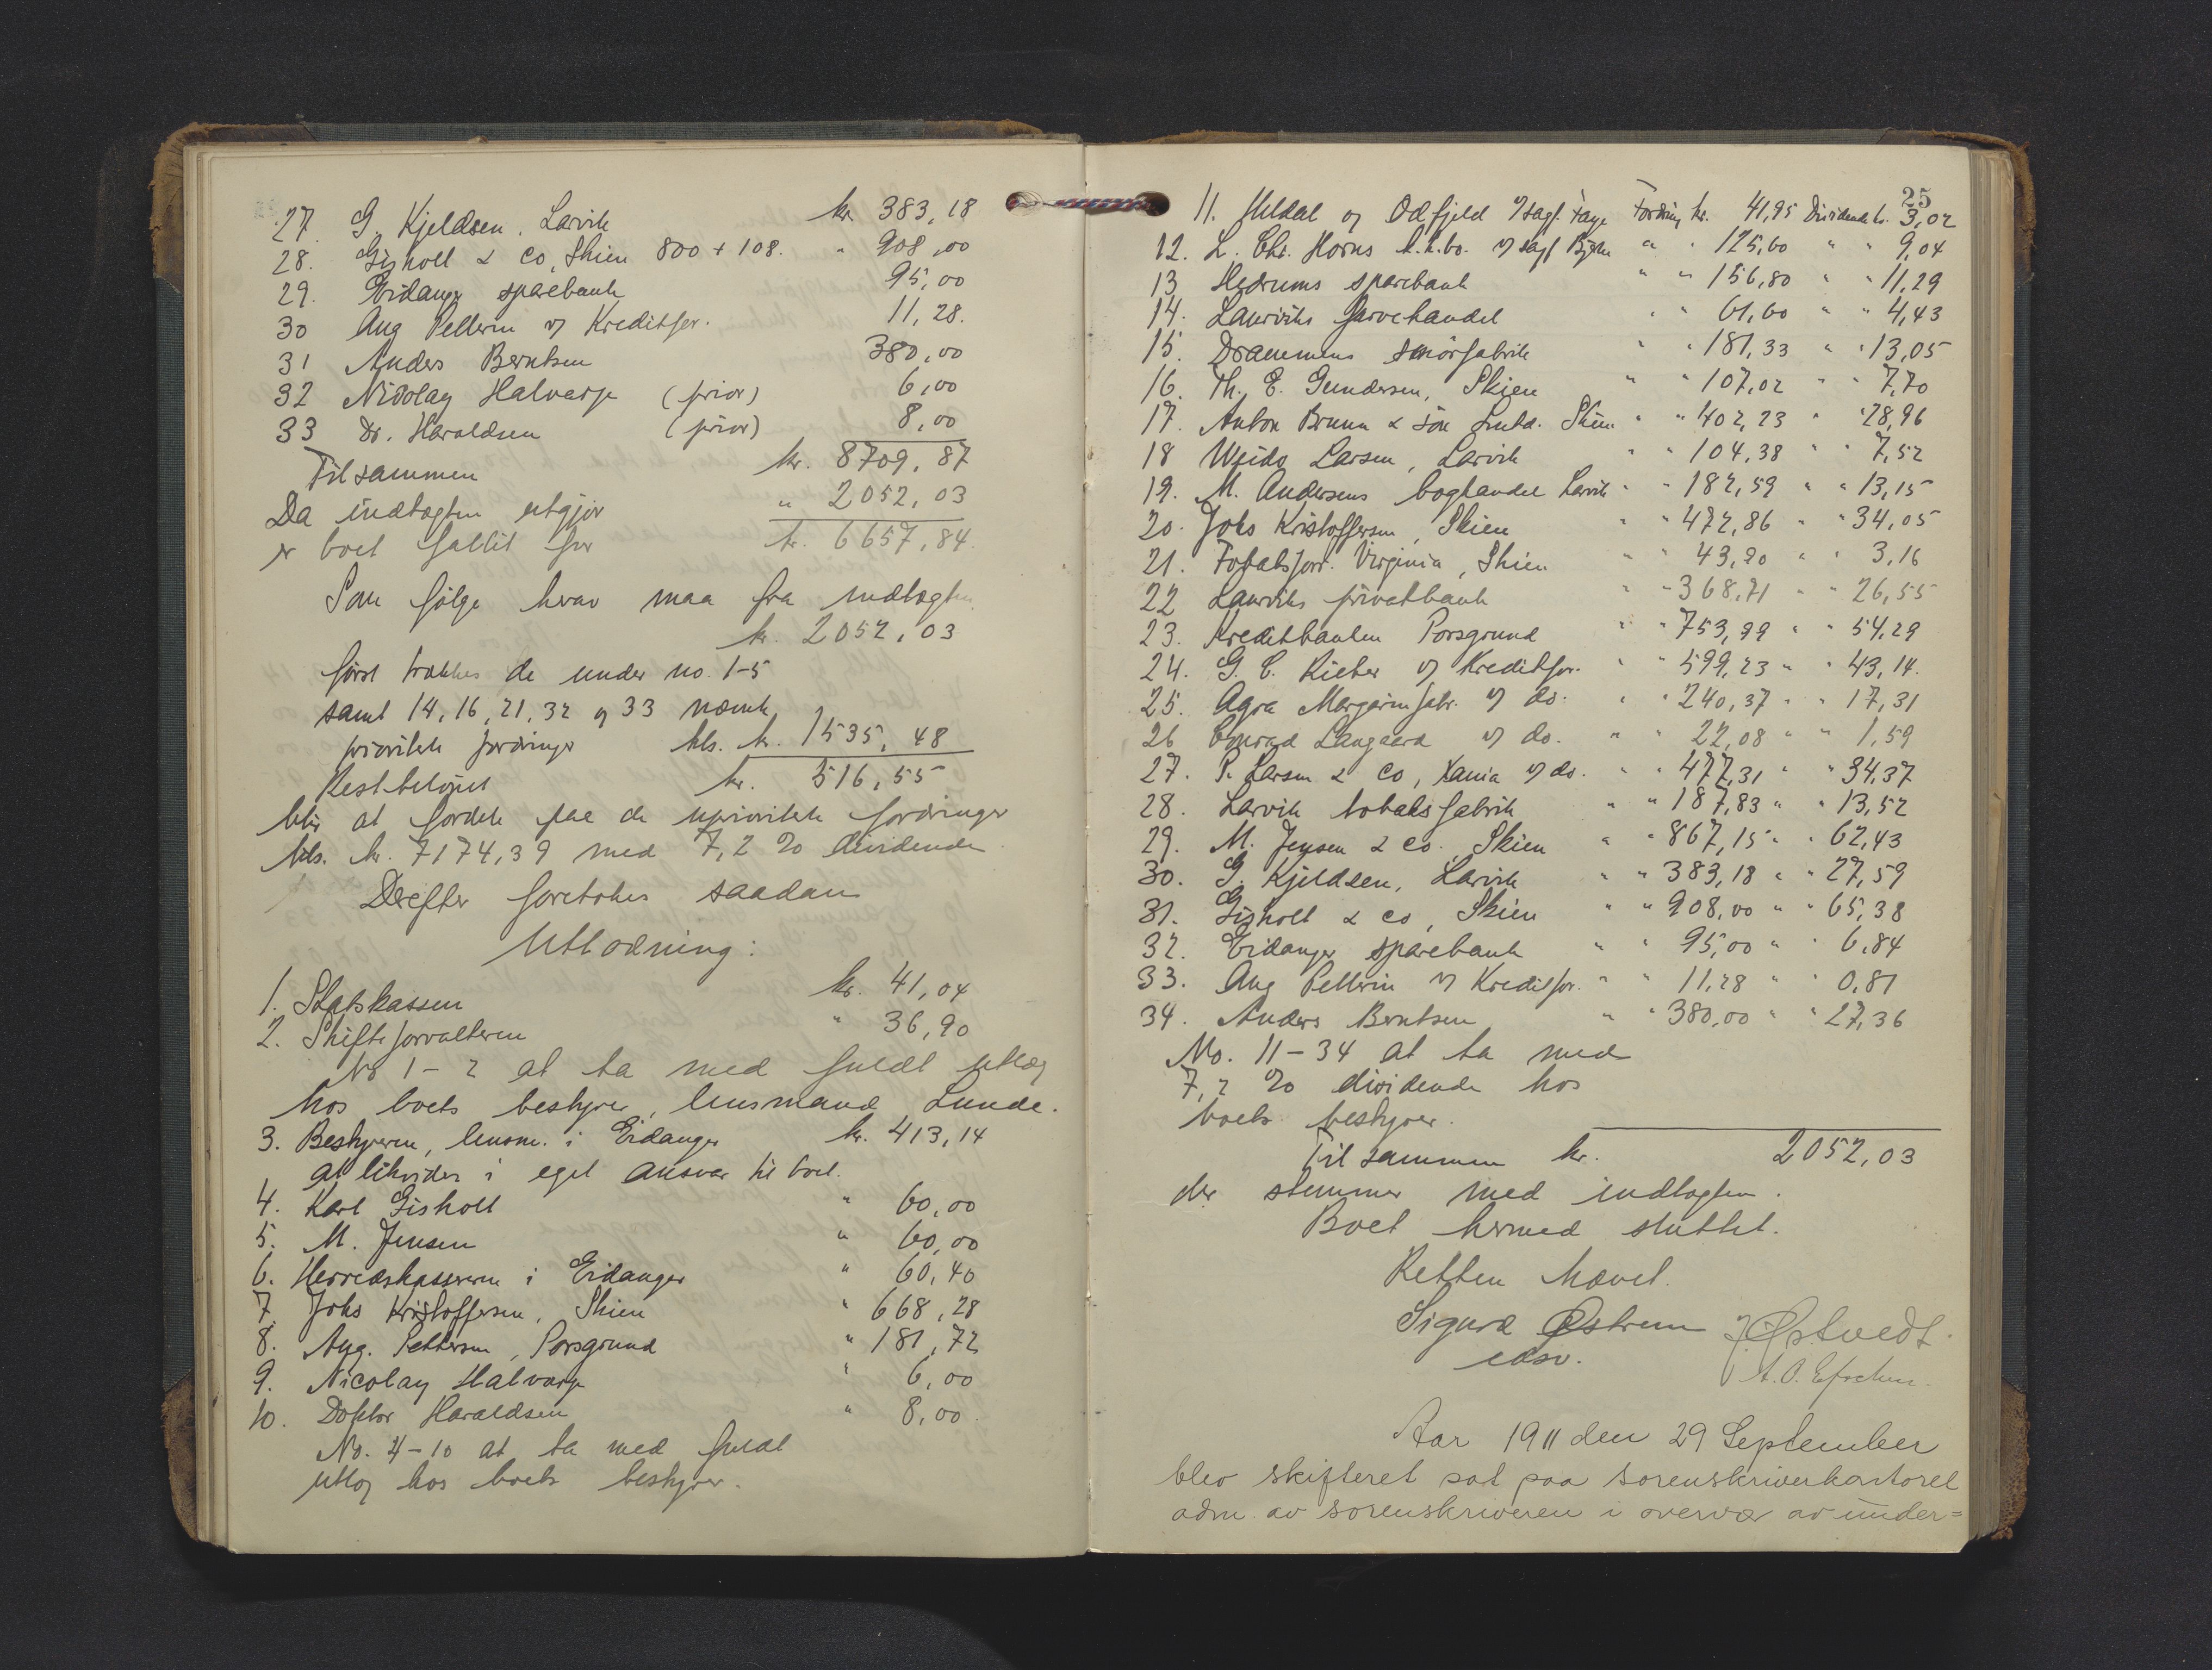 27. G. Kjeldsen, Larvik kr. 383,18
28. Gisholt & Co, Skien 800 + 108. " 908,00
29. Eidanger sparebank 95,00
30 Aug Pellerin v/ Kreditfor. 11,28.
31 Anders Berntsen 380,00
32 Nicolay Halvarp (prior) 6,00
33 Dr. Haraldsen (prior) 8,00
Tilsammen kr. 8709,87
Da indtægten utgjør " 2052,03
er boet fallit for kr. 6657,84.
Som følge herav maa fra indtægten
kr. 2052,03
først trækkes de under no. 1-5
samt 14, 16, 21, 32 og 33 nævnte
prioriterte fordringer tils. kr. 1535,48
Restbeløpet kr. 516,55
blir at fordele paa de uprioriterte fordringer
tils. kr. 7174,39 med 7,2 % dividende.
Derefter foretokes saadan
Utlodning:
1. Statskassen kr. 41,04
2. Skifteforvalteren " 36,90
No 1-2 at ta med fuldt utlæg
hos boets bestyrer, lensmand Lunde.
3. Bestyreren, lensm. i Eidanger kr. 413,14
at likvidere i eget ansvar til boet.
4. Karl Gisholt " 60,00
5. M. Jensen " 60,00
6. Herredskassereren i Eidanger " 60,40
7. Johs Kristoffersen, Skien " 668,28
8. Aug. Pettersen, Porsgrund " 181,72
9. Nicolay Halvarp " 6,00
10. Doktor Haraldsen " 8,00.
No. 4-10 at ta med fuldt
utlæg hos boets bestyrer.
25
11. Meldal og Odfjeld v/ sagf. Faye Fordring kr. 41,95 Dividende kr. 3,02
12. L. Chr. Horns k.k.bo. v/ sagf " " 125,60 " " 9,04
13 Hedrums sparebank " " 156,80 " " 11,29
14. Laurviks farvehandel " " 61,60 " " 4,43
15. Drammens smörfabrik " " 181,33 " " 13,05
16. Th. E. Gundersen, Skien " " 107,02 " " 7,70
17. Anton Bruun & søn Limtd. Skien " " 402,23 " " 28,96
18 Larsen, Larvik " " 104,38 " " 7,52
19. M. Andersens boghandel Larvik " " 182,59 " " 13,15
20. Johs Kristoffersen, Skien " " 472,86 " " 34,05
21. Tobaksforr. Virginia, Skien " " 43,90 " " 3,16
22 Laurviks privatbank " " 368,71 " " 26,55
23. Kreditbanken Porsgrund " " 753,99 " " 54,29
24. G. C. Rieber v/ Kreditfor. " " 599,23 " " 43,14.
25. Agra Margarinfabr. v/ do. " " 240,37 " " 17,31
26 Conrad Langaard v/ do. " " 22,08 " " 1,59
27. P. Larsen & Co, Xania v/ do. " " 477,31 " " 34,37
28. Larvik tobaksfabrik " " 187,83 " " 13,52
29. M. Jensen & Co. Skien " " 867,15 " " 62,43
30. G. Kjeldsen, Larvik " " 383,18 " " 27,59
31. Gisholt & Co, Skien " " 908,00 " " 65,38
32. Eidanger sparebank " " 95,00 " " 6,84
33. Aug Pellerin v/ Kreditfor. " " 11,28 " " 0,81
34. Anders Berntsen " " 380,00 " " 27,36
No. 11-34 at ta med
7,2 % dividende hos
boets bestyrer.
Tilsammen kr. 2052,03
der stemmer med indtægten.
Boet hermed sluttet.
Retten hævet.
Sigurd Østrem J. Østvedt.
edsv.
Aar 1911 den 29 September
blev skifteret sat paa sorenskriverkontoret
adm. av sorenskriveren i overvær av under=